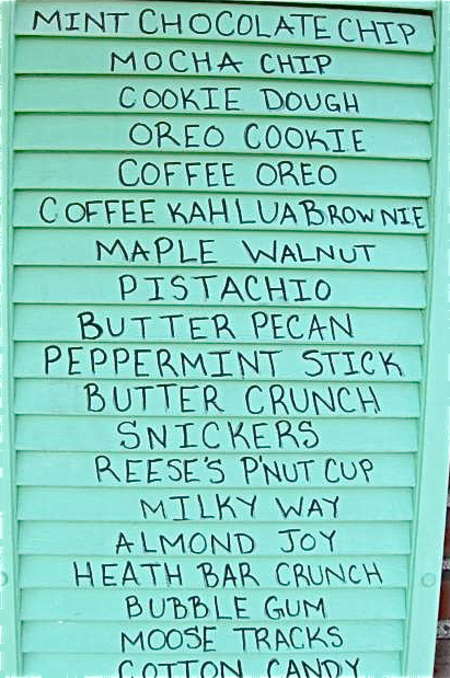 MINT CHOCOLATE CHIP
MOCHA CHIP
COOKIE DOUGH
OREO COOKIE
COFFEE OREO
COFFEE KAHLUA BROWNIE
MAPLE WALNUT
PISTACHIO
BUTTER PECAN
PEPPERMINT STICK
BUTTER CRUNCH
SNICKERS
REESE'S P'NUT CUP
MILKY WAY
ALMOND JOY
HEATH BAR CRUNCH
BUBBLE GUM
MOOSE TRACKS
COTTON CANDY